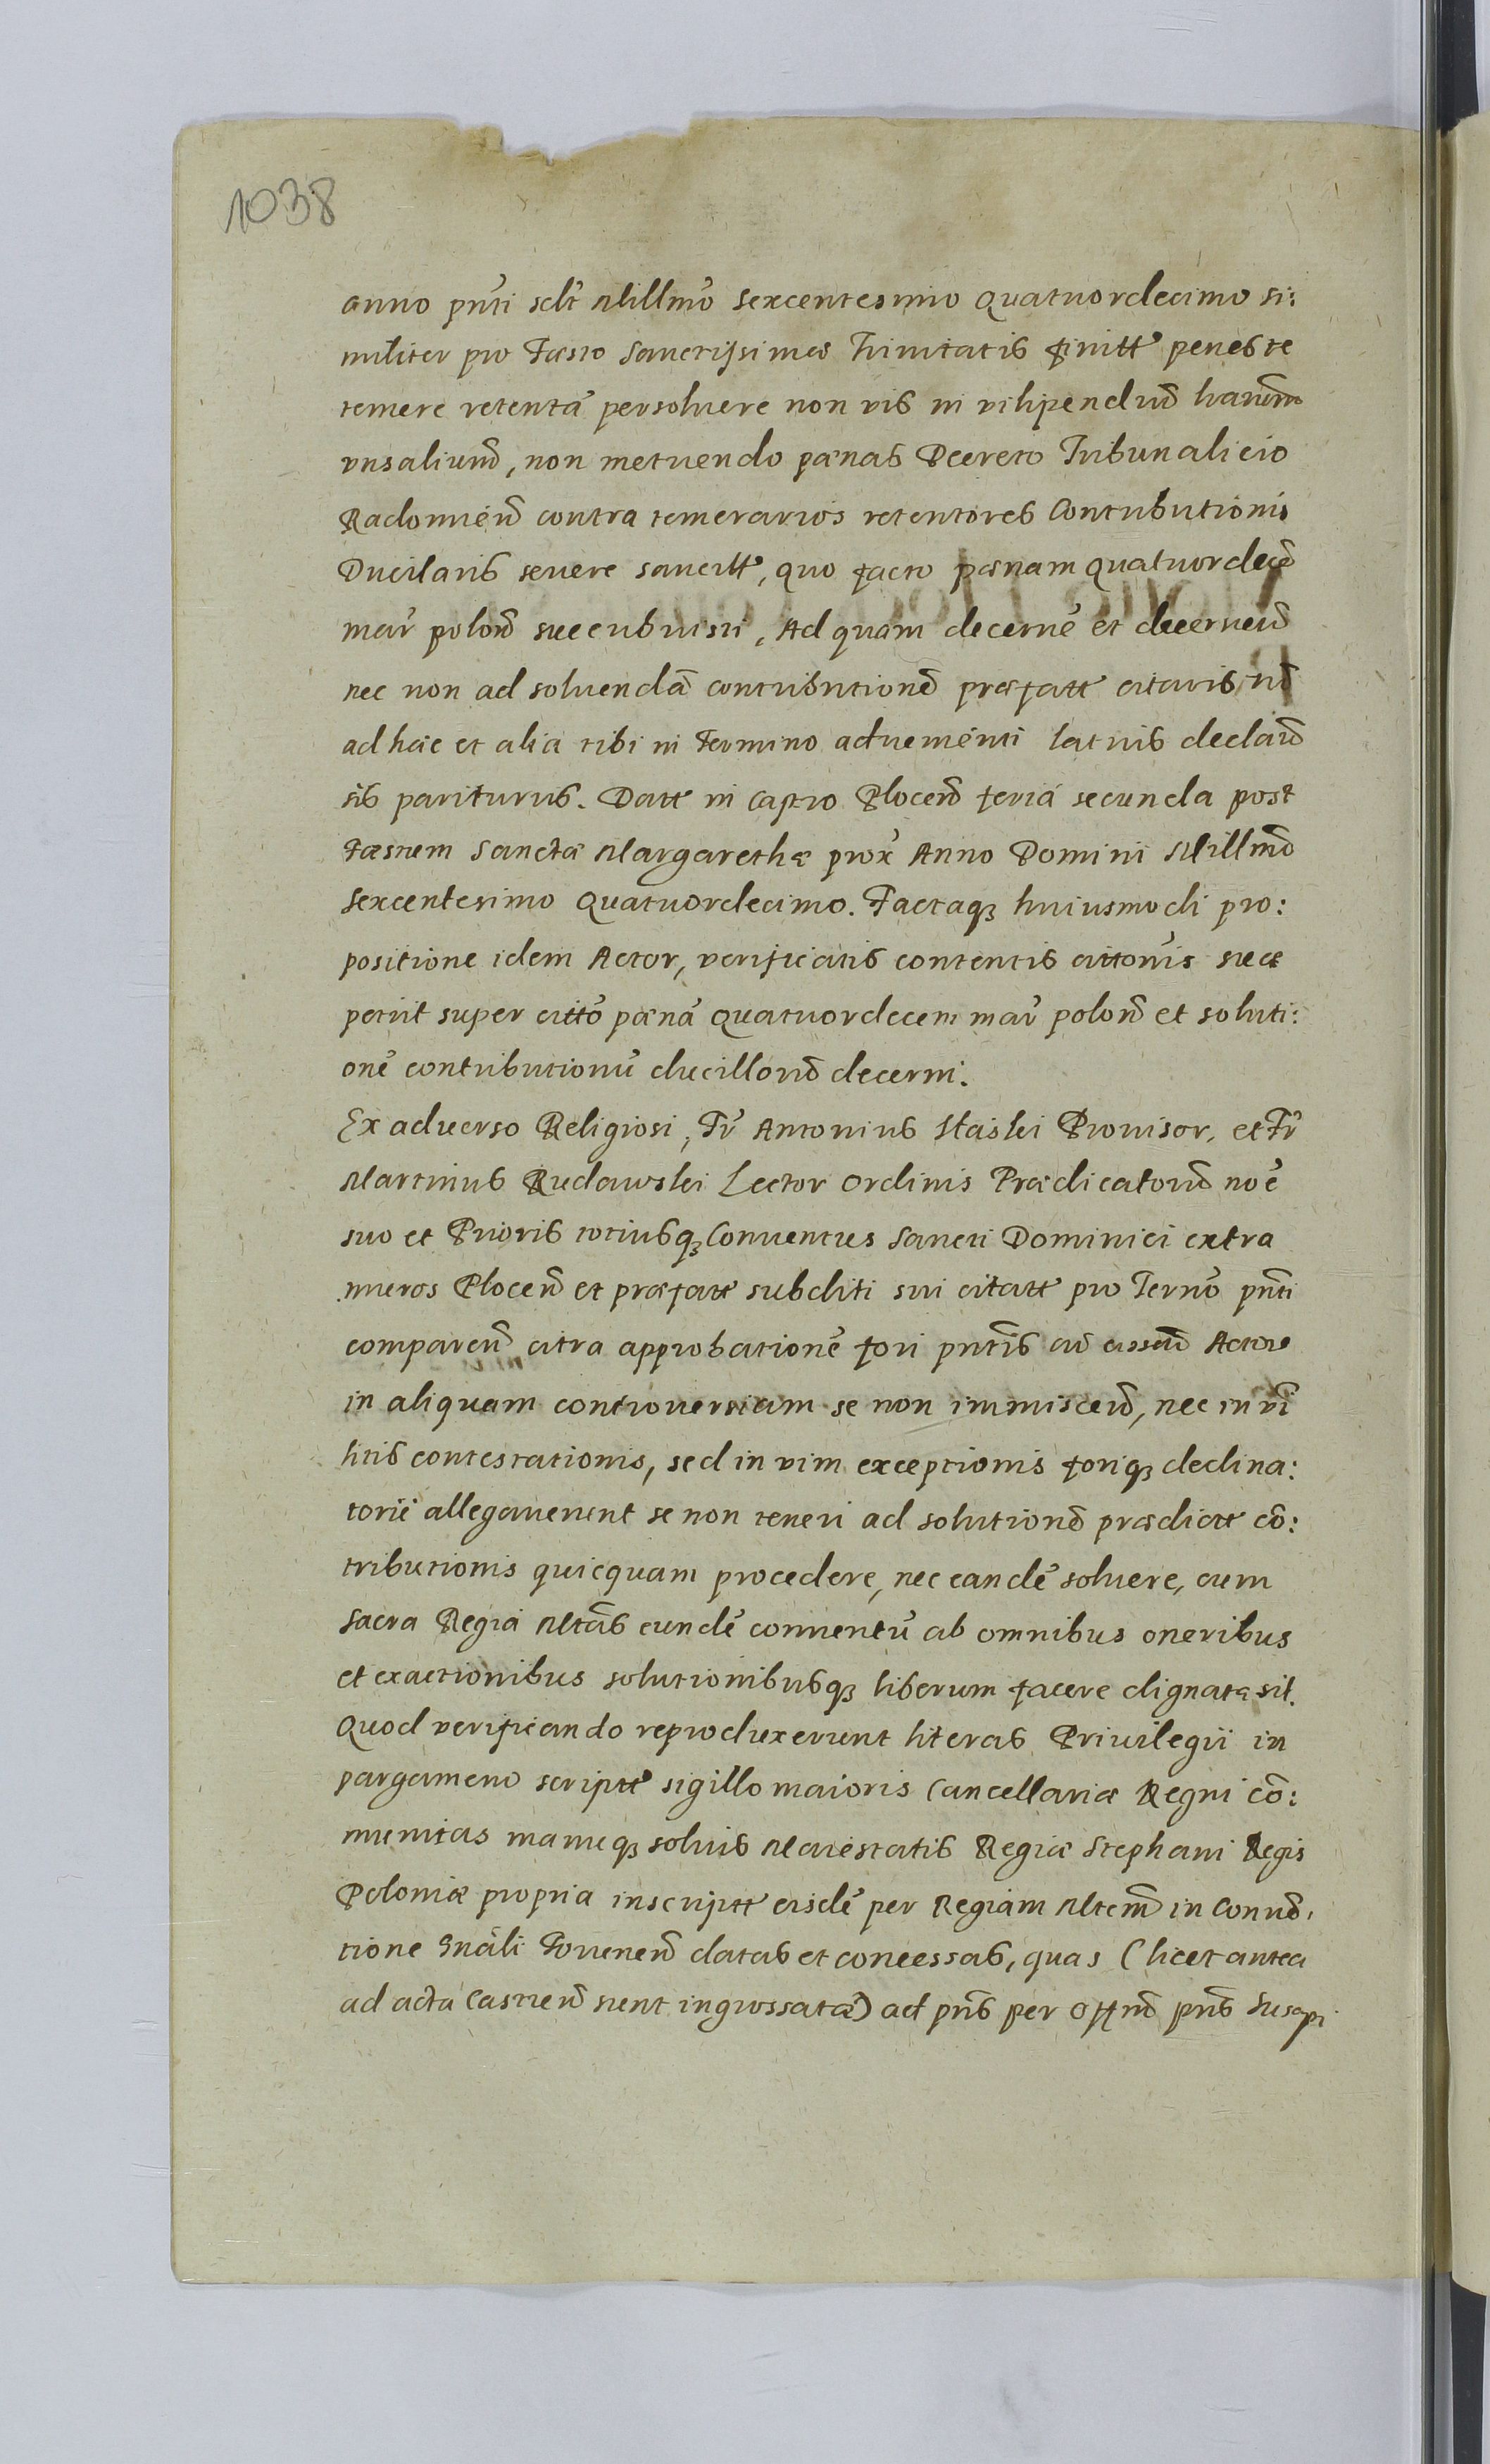 1038
anno pnti sclt Millmo sexcentesimo quatuordecimo si:
militer pro Faesto Sanctissimae Trinitatis finitt penes te
temere retentã persoluere non vis in vilipendiũ harum
vnsaliund, non metuendo paenas Decreto Tribunalicio
Radomien contra temerarios retentores Contributionis
Ducilaris seuere sancitt, quo facto paenam quatuordecẽ
mar polon succubuisti, Ad quam decerne et decerneñ
nec non ad soluendã contributionẽ praefatt citaris,
ad haec et alia tibi in Termino aduenienti latius declarã
sis pariturus. Datt in Castro Plocen feria secunda post
Faestum Sanctae Margarethae prox Anno Domini Millmo
Sexcentesimo Quatuordecimo. Factaq; huiusmodi pro:
positione idem Actor, verificatis contentis cittonis suae
petiit super citto paenã quatuordecem mar polon et soluti:
onẽ contributionũ ducillorũ decerni.
Ex aduerso Religiosi, Fr Antonius Staski Prouisor, et Fr
Martinus Rudawski Lector Ordinis Praedicatorũ noẽ
suo et Prioris totiusq; Conuentus Sancti Dominici extra
muros Plocen et praefatt subditi sui citatt pro Termo pnti
comparen citra approbationẽ fori pntis cũ Actore
in aliquam controuersiam se non immisceñ, nec in vĩ
litis contestationis, sed in vim exceptionis foriq; declina:
torii allegauerunt se non teneri ad solutionẽ praedictt cõ:
tributionis quicquam procedere, nec eandẽ soluere, cum
Sacra Regia Mtas eundẽ conuentũ ab omnibus oneribus
et exactionibus solutionibusq; liberum facere dignata sit.
Quod verificando reproduxerunt literas Priuilegii in
pargameno scriptt sigillo maioris Cancellariae Regni cõ:
munitas manuq; soluis Maiestatis Regiae Stephani Regis
Poloniae propria inscriptt eisdẽ per Regiam Mtem in Conuẽ,
tione Gnali Torunen datas et concessas, quas (licet antea
ad acta Castren sunt ingrossatae) ad pns per Offm pns Suscipi